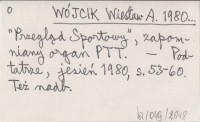 0 WÓJCIK Wiesław A. 1980...
"Przegląd Sportowy", zapom-
niany organ PTT. — Pod-
tatrze, jesień 1980, s. 53-60.
Też nadb.